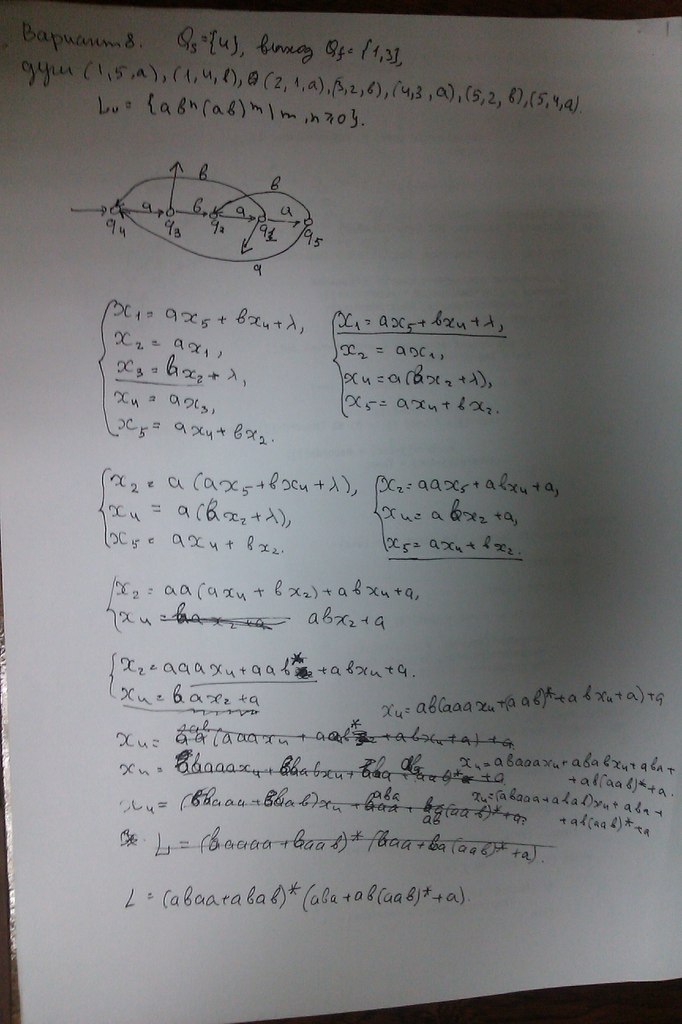 Вариант 8. Qs={4}, выход Qf={1,3},
дуги (1,5,a), (1,4,b), (2,1,a), (3,2,b), (4,3,a), (5,2,b), (5,4,a).
Lv = {ab^n(ab)^m | m, n ≥ 0}.
b
b
a b a a
q4 q3 q2 q1 q5
a
x1 = ax5 + bx4 + λ,
x2 = ax1,
x3 = bx2 + λ,
x4 = ax3,
x5 = ax4 + bx2.
x1 = ax5 + bx4 + λ,
x2 = ax1,
x4 = a(bx2 + λ),
x5 = ax4 + bx2.
x2 = a(ax5 + bx4 + λ),
x4 = a(bx2 + λ),
x5 = ax4 + bx2.
x2 = aax5 + abx4 + a,
x4 = abx2 + a,
x5 = ax4 + bx2.
x2 = aa(ax4 + bx2) + abx4 + a,
x4 = abx2 + a
x2 = aaax4 + aab* + abx4 + a.
x4 = bax2 + a
x4 = ab(aaax4 + (aab)* + abx4 + a) + a
x4 =
x4 = abaaax4 + ababx4 + aba +
+ ab(aab)* + a.
x4 =
x4 = (abaaa + abab)x4 + aba +
+ ab(aab)* + a
x4 =
L =
L = (abaa + abab)* (aba + ab(aab)* + a).